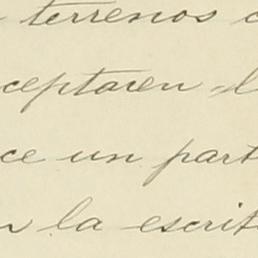 terrenos
ceptaren
ce un part
la escrit